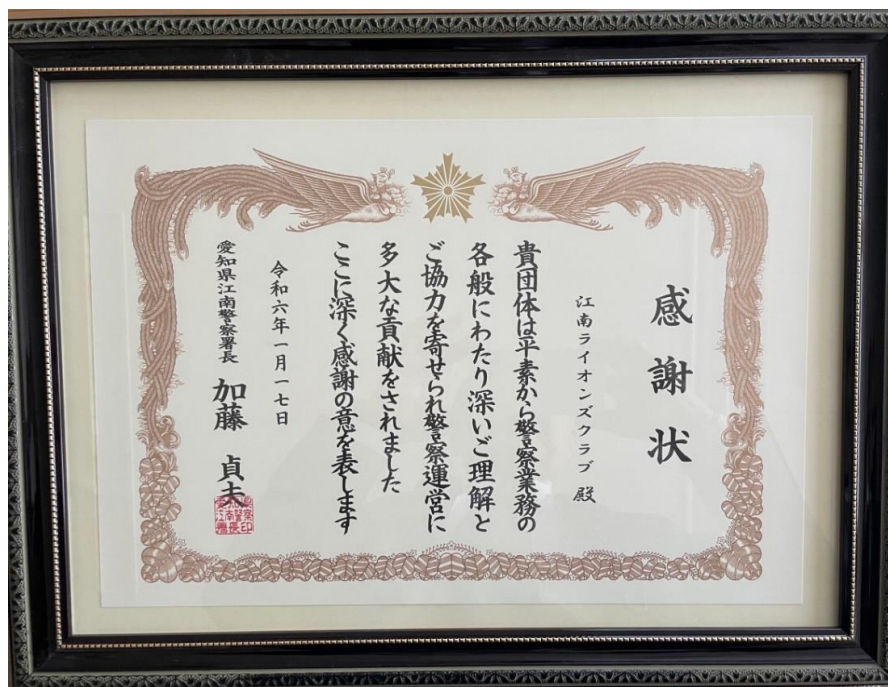 感謝状
江南ライオンズクラブ 殿
貴団体は平素から警察業務の
各般にわたり深いご理解と
ご協力を寄せられ警察運営に
多大な貢献をされました
ここに深く感謝の意を表します
令和六年一月一七日
愛知県江南警察署長 加藤 貞夫